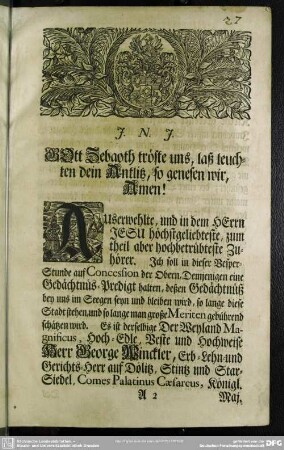 27
J. N. J.
GOtt Zebaoth tröste uns, laß leuch-
ten dein Antlitz, so genesen wir,
Amen!
AUserwehlte, und in dem HErrn
JESU höchstgeliebteste, zum
theil aber hochbetrübteste Zu-
hörer. Ich soll in dieser Vesper-
Stunde auf Concession der Obern, Demjenigen eine
Gedächtnis-Predigt halten, deßen Gedächtnüß
bey uns im Seegen seyn und bleiben wird, so lange diese
Stadt stehen, und so lange man große Meriten gebührend
schätzen wird. Es ist derselbige Der Weyland Ma-
gnificus, Hoch-Edle, Veste und Hochweise
Herr George Winckler, Erb-Lehn-und
Gerichts-Herr auf Dölitz, Stüntz und Star-
Siedel, Comes Palatinus Cæsareus, Königl.
A 2
Maj.
DFG